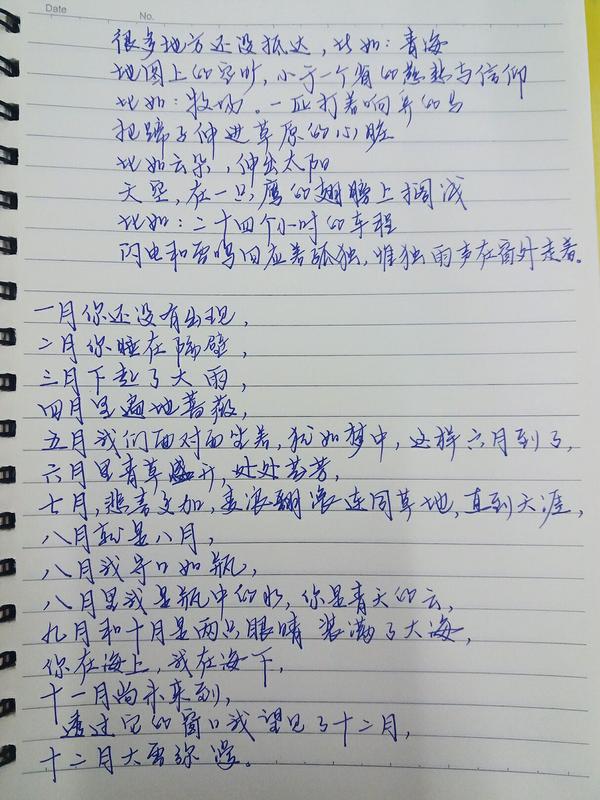 Date
No.
很多地方还没抵达，比如：青海
地图上的字眼，小于一个省的热熬与信仰
比如：牧场。一匹打着响鼻的马
把蹄子伸进草原的心脏
比如云朵，伸出太阳
天空，在一只鹰的翅膀上搁浅
比如：二十四个小时的车程
闪电和雷鸣回应着孤独，惟独雨声在窗外走着。
一月你还没有出现，
二月你睡在隔壁，
三月下起了大雨，
四月里遍地蔷薇，
五月我们面对面坐着，犹如梦中，这样六月到了，
六月里青草盛开，处处芬芳，
七月，悲喜交加，麦浪翻滚连同草地，直到天涯，
八月就是八月，
八月我守口如瓶，
八月里我是瓶中的水，你是青天的云，
九月和十月是两只眼睛 装满了大海，
你在海上，我在海下，
十一月尚未来到，
透过它的窗口我望见了十二月，
十二月大雪弥漫。